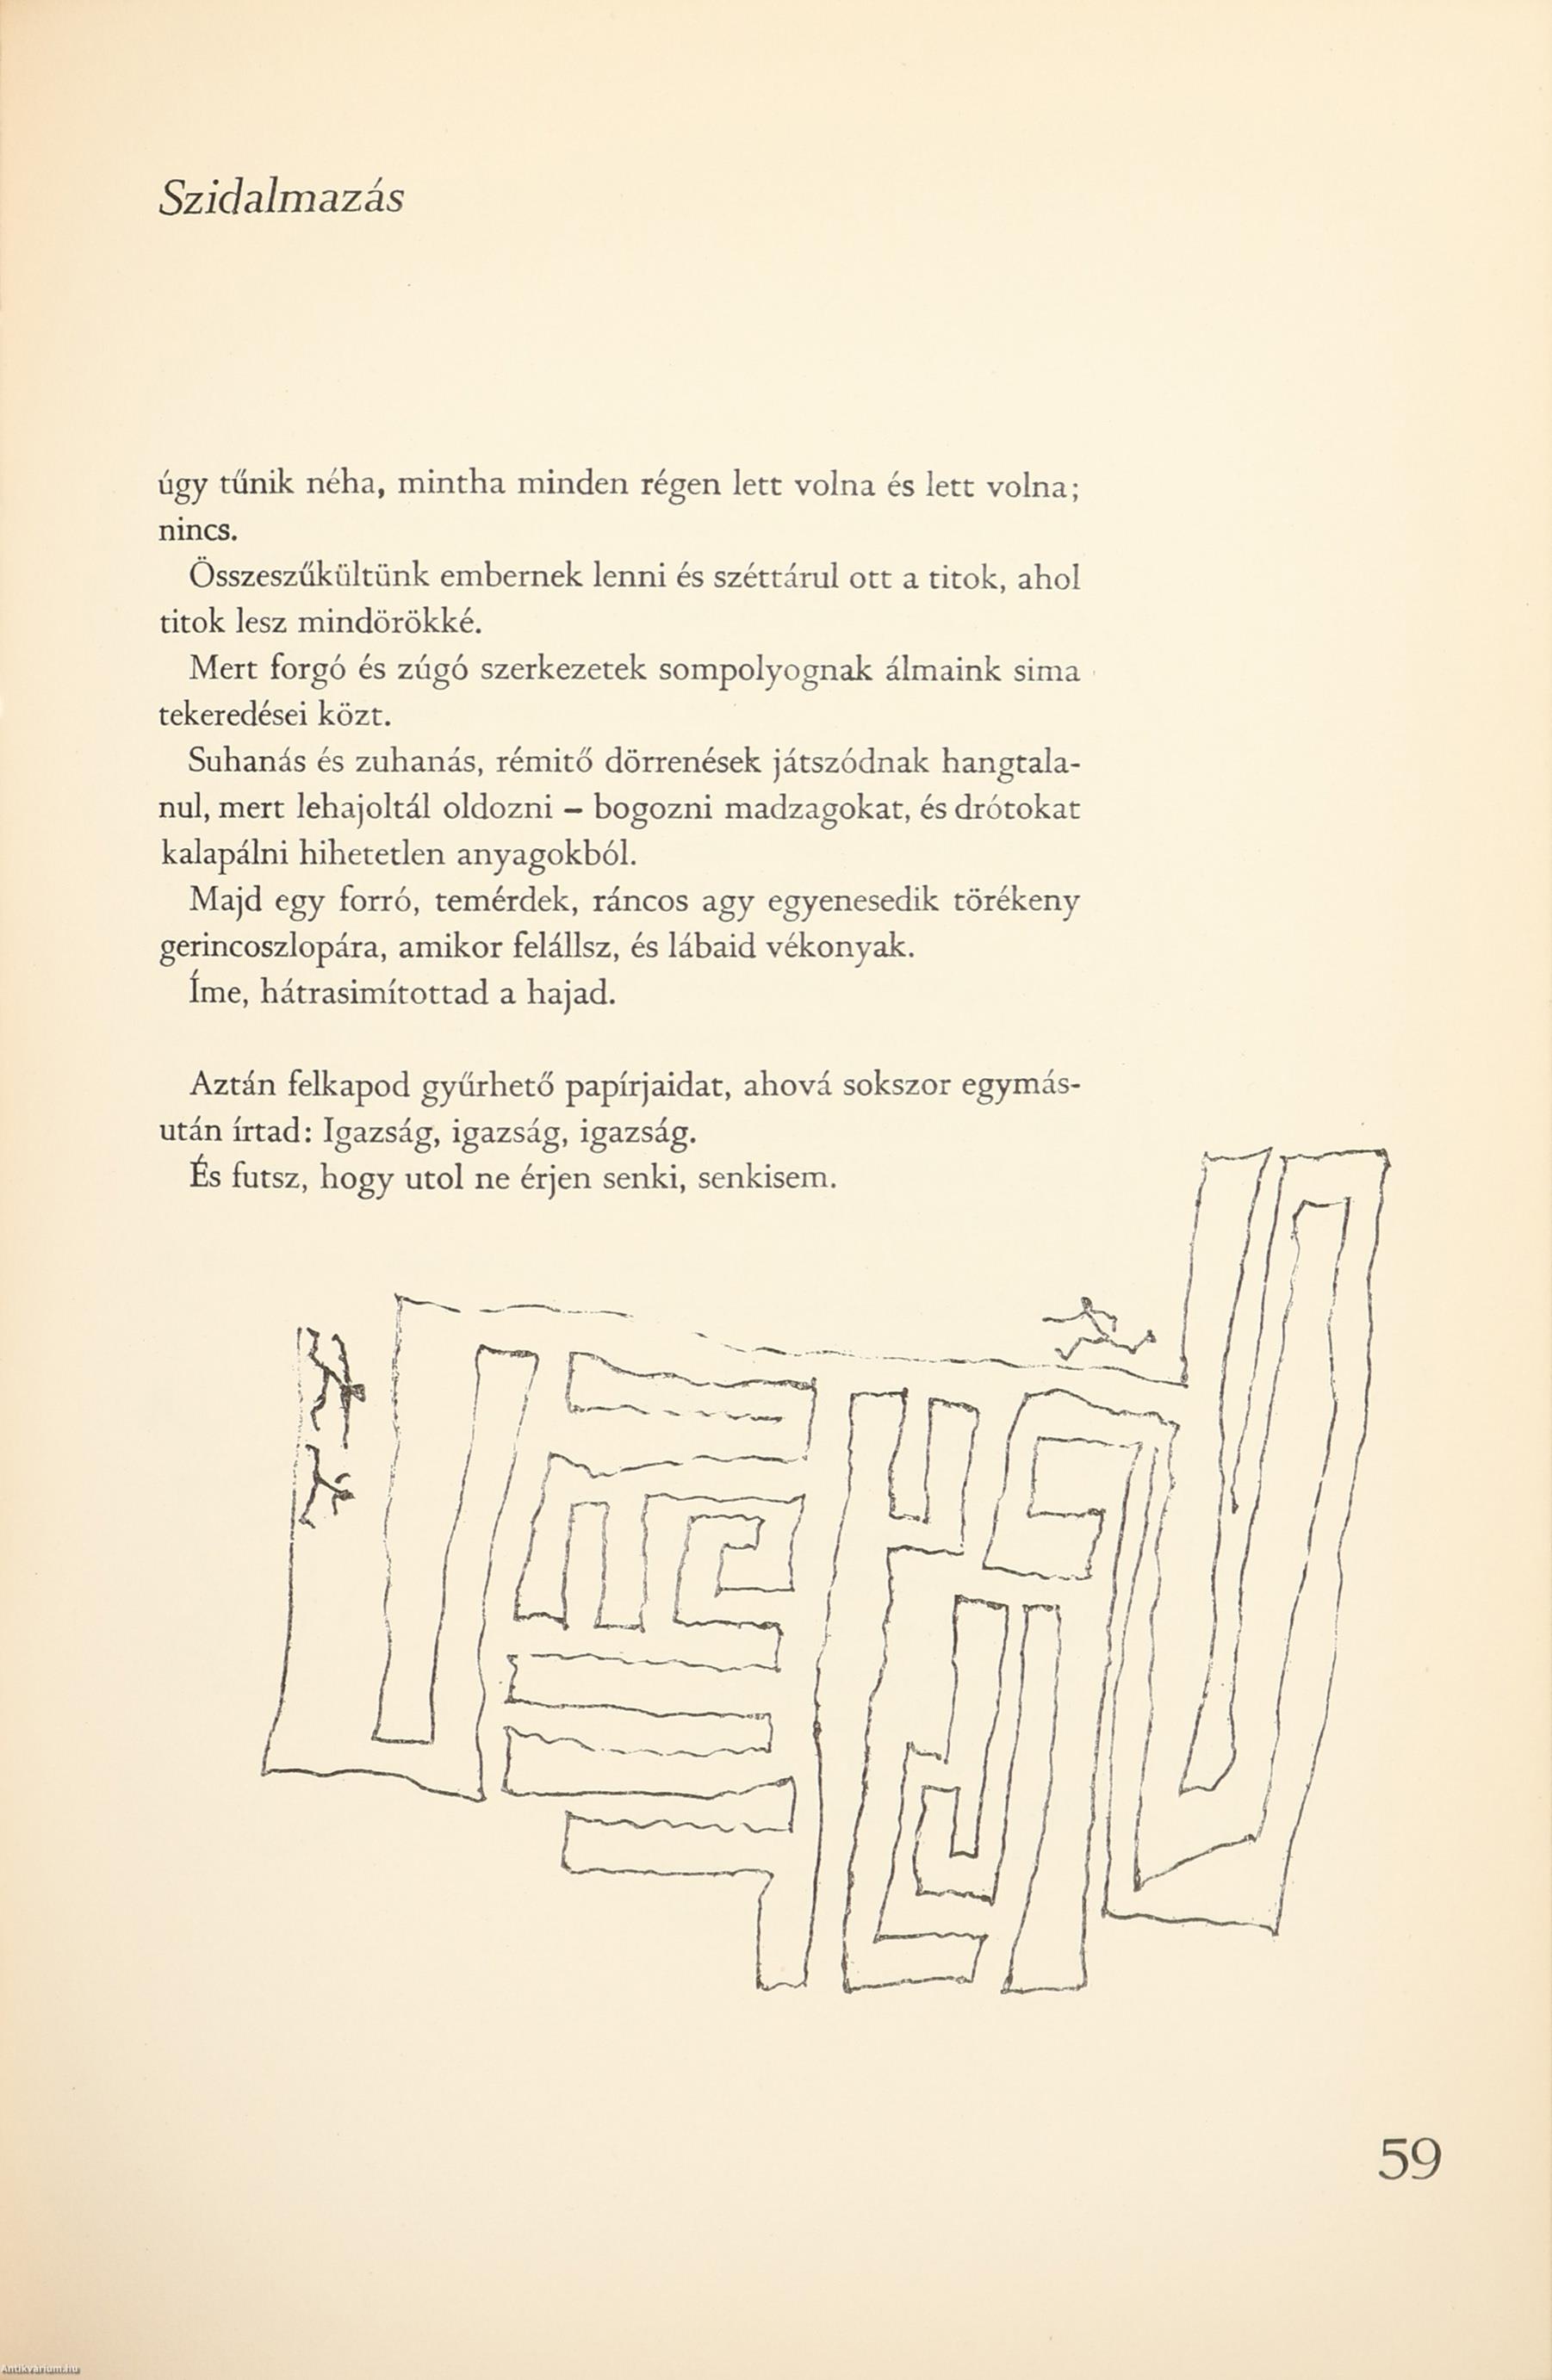 Szidalmazás
úgy tűnik néha, mintha minden régen lett volna és lett volna;
nincs.
Összeszűkültünk embernek lenni és széttárul ott a titok, ahol
titok lesz mindörökké.
Mert forgó és zúgó szerkezetek sompolyognak álmaink sima
tekeredései közt.
Suhanás és zuhanás, rémitő dörrenések játszódnak hangtala-
nul, mert lehajoltál oldozni – bogozni madzagokat, és drótokat
kalapálni hihetetlen anyagokból.
Majd egy forró, temérdek, ráncos agy egyenesedik törékeny
gerincoszlopára, amikor felállsz, és lábaid vékonyak.
Íme, hátrasimítottad a hajad.
Aztán felkapod gyűrhető papírjaidat, ahová sokszor egymás-
után írtad: Igazság, igazság, igazság.
És futsz, hogy utol ne érjen senki, senkisem.
59
Antikvarium.hu